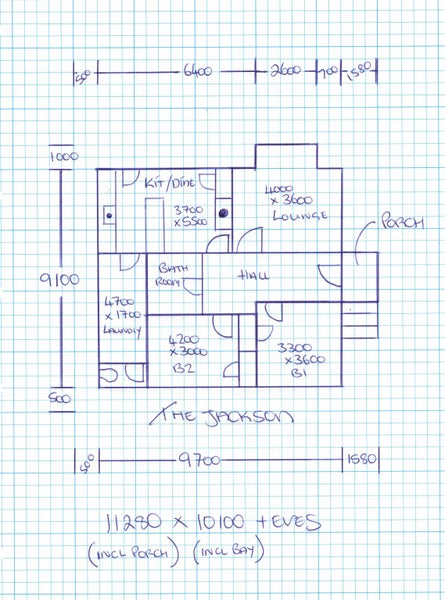 6400
2600
700
1580
1000
KIT/DINE
3700
x5500
4000
x 3600
LOUNGE
PORCH
9100
BATH
ROOM
HALL
4700
x 1700
LAUNDRY
4200
x 3000
B2
3300
x3600
B1
500
THE JACKSON
9700
1580
11280 x 10100 + EVES
(INCL PORCH) (INCL BAY)